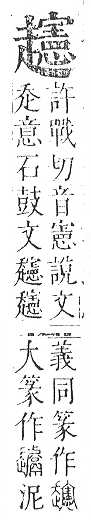 許戰切音憲說文
赱意石鼓文
義同篆作
大篆作泥